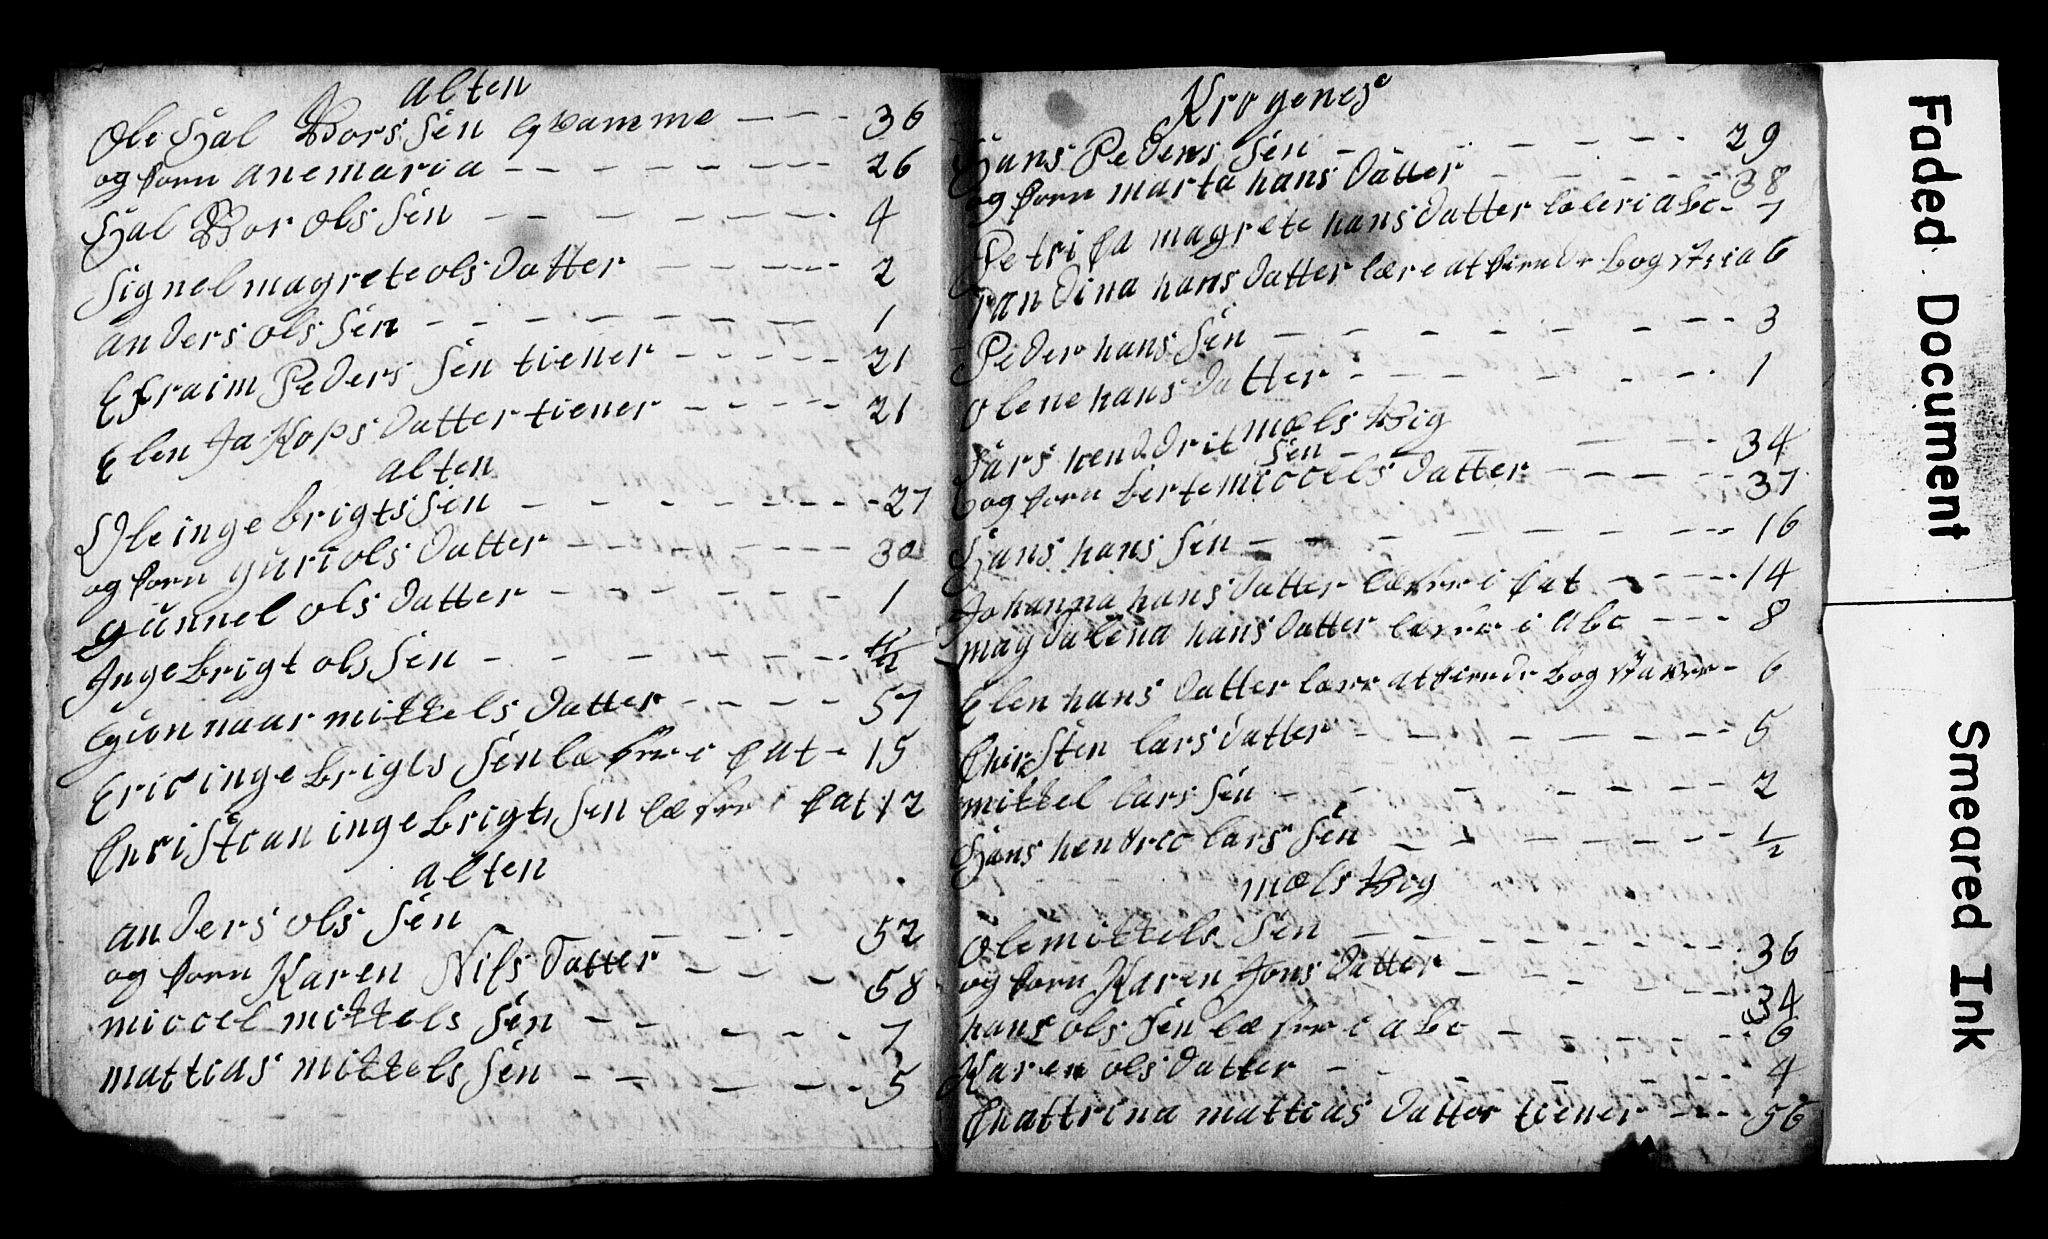 alten
Ole Hal Vors Sen qvamme - - - 36
og kom anemaria - - - - - - - 26
Hal Vor ols Sen - - - - - - - 4
Signel magrete ols datter - - - - - 2
anders ols Sen - - - - - - - - 1
Efraim Peders Sen tiener - - - - - 21
Elen JaKops datter tiener - - - - - 21
alten
Ole inge brigts Sen - - - - - - - - 27
og kom guri ols datter - - - - - - - - 30
gunnel ols datter - - - - - - - 1
Inge brigt ols Sen - - - - - - - 1/2
gunnaar mikkels datter - - - - 57
Eric inge brigts Sen læser i Cat - 15
Christian inge brigts Sen læser i Cat 12
alten
anders ols Sen - - - - 52
og kom Karen Nils datter - - - - 58
miccel mikkels Sen - - - - - 7
mattias mikkels Sen - - - - - 5
Krogenes
Hans Peders Sen - - - - - - - 29
og kom marta hans datter - - - - - 38
Petrika magrete hans datter læser i abc - 7
ran dina hans datter lære at kiende bogst 6
Peder hans Sen - - - - - - - - 3
olene hans datter - - - - - - - 1
mæls Vig
Lars henddrik Sen - - - - - 34
og kom berte miccels datter - - - - - 37
Hans hans Sen - - - - - - - - 16
Johanna hans datter læser i Cat - - - - - 14
magdalena hans datter læser i abc - - - 8
Elen hans datter lære at kiende bogstaver - 6
Chirsten lars datter - - - - - - - 5
mikkel lars Sen - - - - - - - - 2
Hans hendrec lars Sen - - - - - - - 1/2
mæls Vig
Ole mikkels Sen - - - - - - - - 36
og kom Karen Jons datter - - - - - - - 34
hans ols Sen læser i abc - - - - - - 6
Karen ols datter - - - - - - - - 4
Chattrina mattias datter tiener - - - 56
Faded Document
Smeared Ink